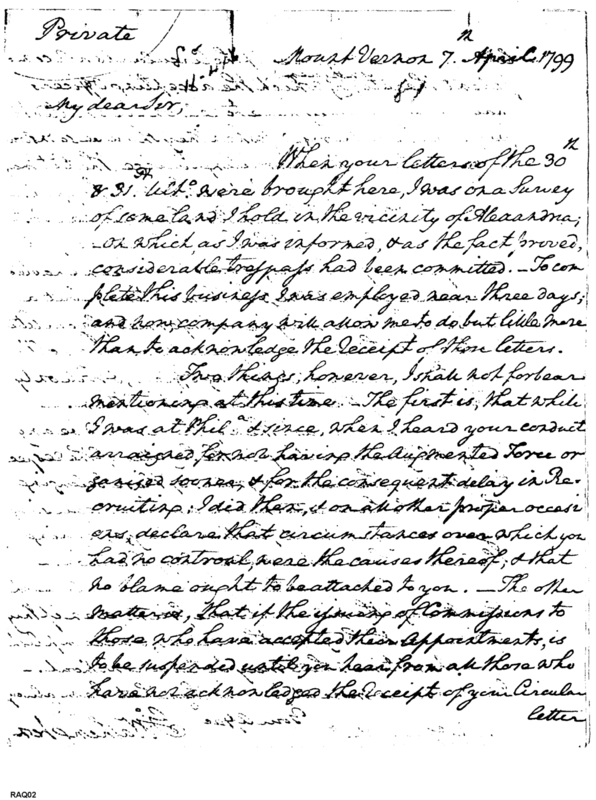 Private
Mount Vernon 7.th April 1799
My dear Sir,
When your letters of the 30th
& 31st Ulto. were brought here, I was on a Survey
of some land I hold in the vicinity of Alexandria;
-on which, as I was informed, & as the fact proved,
considerable trespass had been committed. - To com
plete this business, I was employed near three days;
and now company will allow me to do but little more
than to acknowledge the Receipt of those letters.
Two things, however, I shall not forbear
mentioning at this time. - The first is, that while
I was at Phila. & since, when I heard your conduct
arraigned for not having the Augmented Force or
ganised sooner, & for the consequent delay in Re-
cruiting; I did then, & on all other proper occasi
ons, declare that circumstances over which you
had no controul, were the causes thereof; & that
no blame ought to be attached to you. - The other
matter is, that if the issuing of Commissions to
those who have accepted their Appointments, is
to be suspended until you hear from all those who
have not acknowledged the Receipt of your Circular
letter
RAQ02